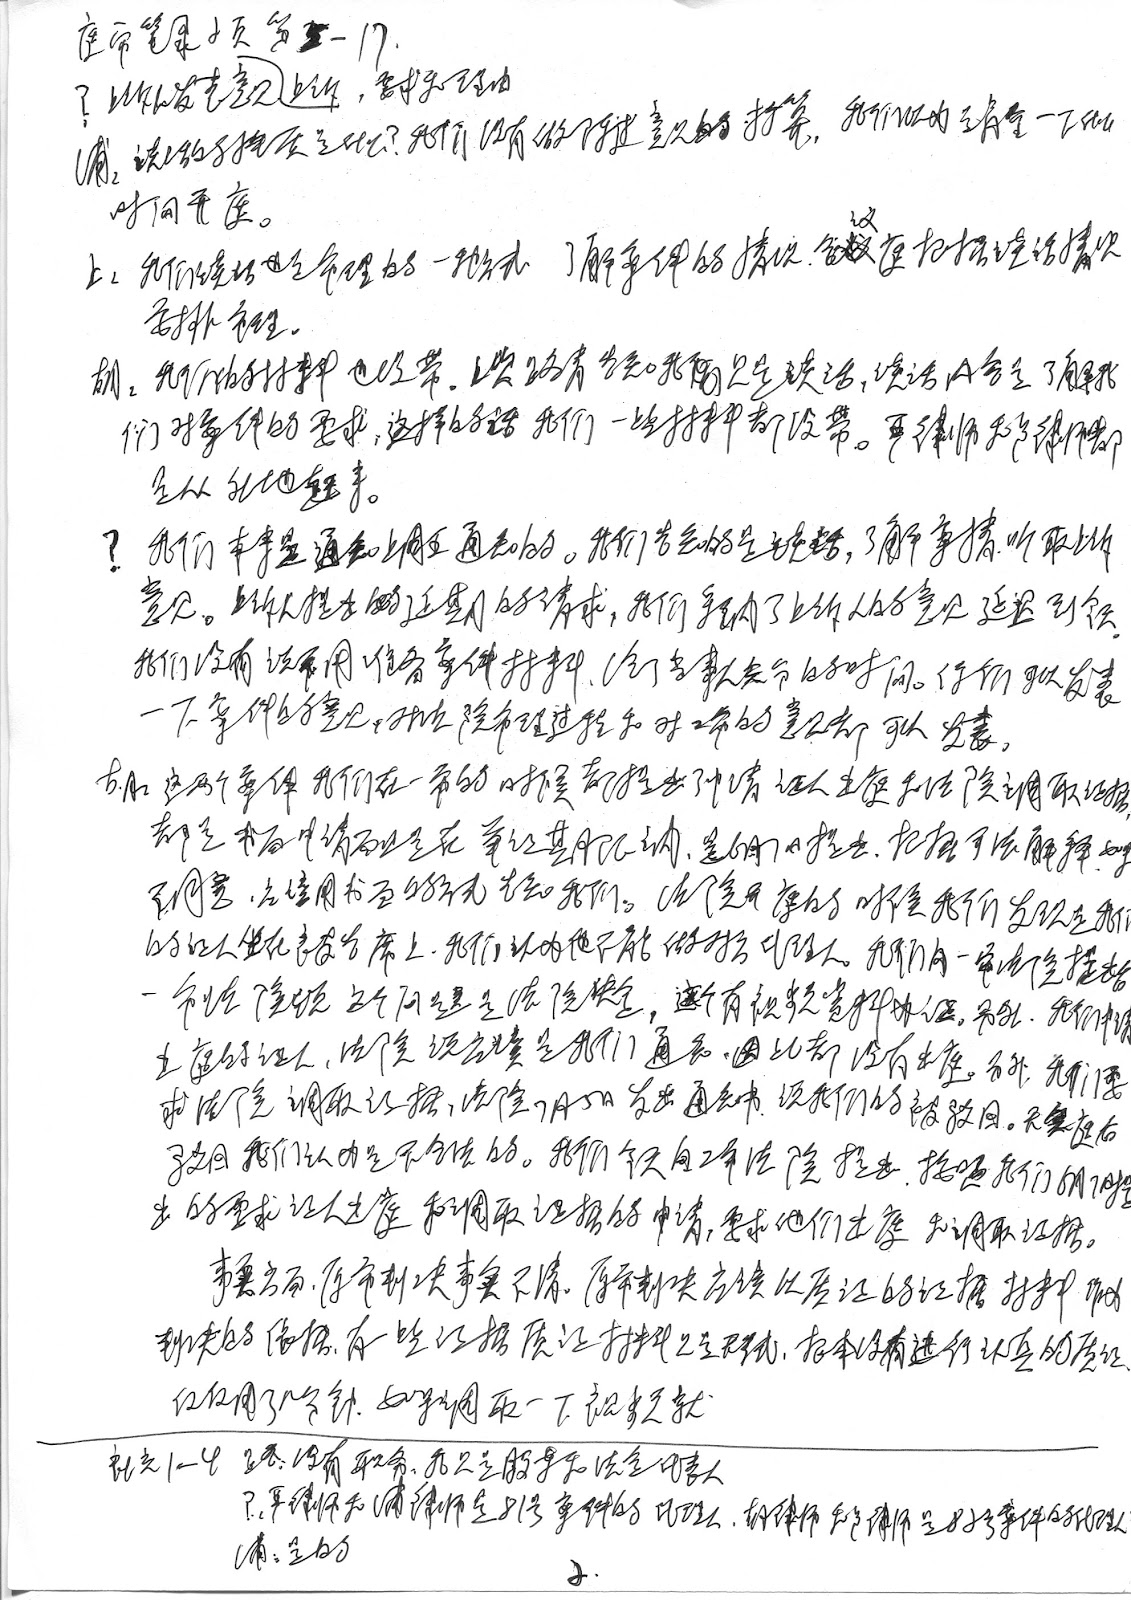 庭审笔录2页 第 -17.
? 上诉人发表意见上诉,要求和理由
浦: 谈话的性质是什么?我们没有做陈述意见的打算,我们认为是肯定一下 
时间开庭。
上: 我们谈话也是审理的一种方式 了解案件的情况.合议庭根据谈话情况
安排审理。
胡: 我们的材料也没带。上次 告知我们只是谈话,谈话内容是了解我
们对案件的要求,这样的话我们一些材料都没带。 律师和 律师都
是从外地赶来。
? 我们本来是通知上周五通知的。我们告知的是谈话,了解事情.听取上诉
意见。上诉人提出的了延期的请求,我们采纳了上诉人的意见 延迟到今天.
我们没有说不用准备案件材料.给了当事人充分的时间。你们可以发表
一下案件的意见,对法院审理过程和对二审的意见都可以发表。
胡: 这两个案件我们在一审的时候都提出了申请证人出庭和法院调取证据,
都是书面申请而且是在举证期限之内.是6月7日提出.根据司法解释.如果
不同意.应该用书面的形式告知我们。法院开庭的时候我们发现是我们
的证人坐在 席上.我们认为他不能做对方代理人。我们向一审法院提出
一审法院说这个问题是法院决定,这个有视频资料为证。另外.我们申请
出庭的证人,法院说应该是我们通知.因此都没有出庭。另外.我们要
求法院调取证据,法院7月5日发出通知书.说我们的被驳回。 庭后
驳回我们认为是不合法的。我们今天向二审法院提出.按照我们6月7日提
出的要求证人出庭和调取证据的申请,要求他们出庭和调取证据。
事实方面.原审判决事实不清。原审判决应该以质证的证据材料作为
判决的依据.有一些证据质证材料只是形式.根本没有进行认真的质证.
仅仅用了几分钟.如果调取一下视频就
补充1-4 : 没有职务.我只是股东和法定代表人
?: 律师和浦律师是81号案件的代理人.胡律师和 律师是82号案件的代理人
浦: 是的
2.